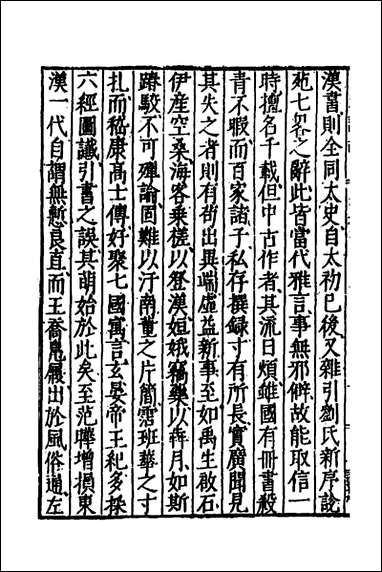 漢書則全同太史自太初已後又雜引劉氏新序說
苑七畧之辭此皆當代雅言事無邪僻故能取信一
時擅名千載但中古作者其流日煩雖國有冊書殺
青不暇而百家諸子私存撰録寸有所長實廣聞見
其失之者則有苟出異端虛益新事至如禹生啟石
伊産空桑海客乗槎以登漢姮娥竊藥以奔月如斯
踳駁不可殫論固難以汙南董之片簡霑班華之寸
札而嵇康高士傳好聚七國寓言玄晏帝王紀多採
六經圖讖引書之誤其萌始於此矣至范曄增損東
漢一代自謂無慙良直而王喬鳧履出於風俗通左